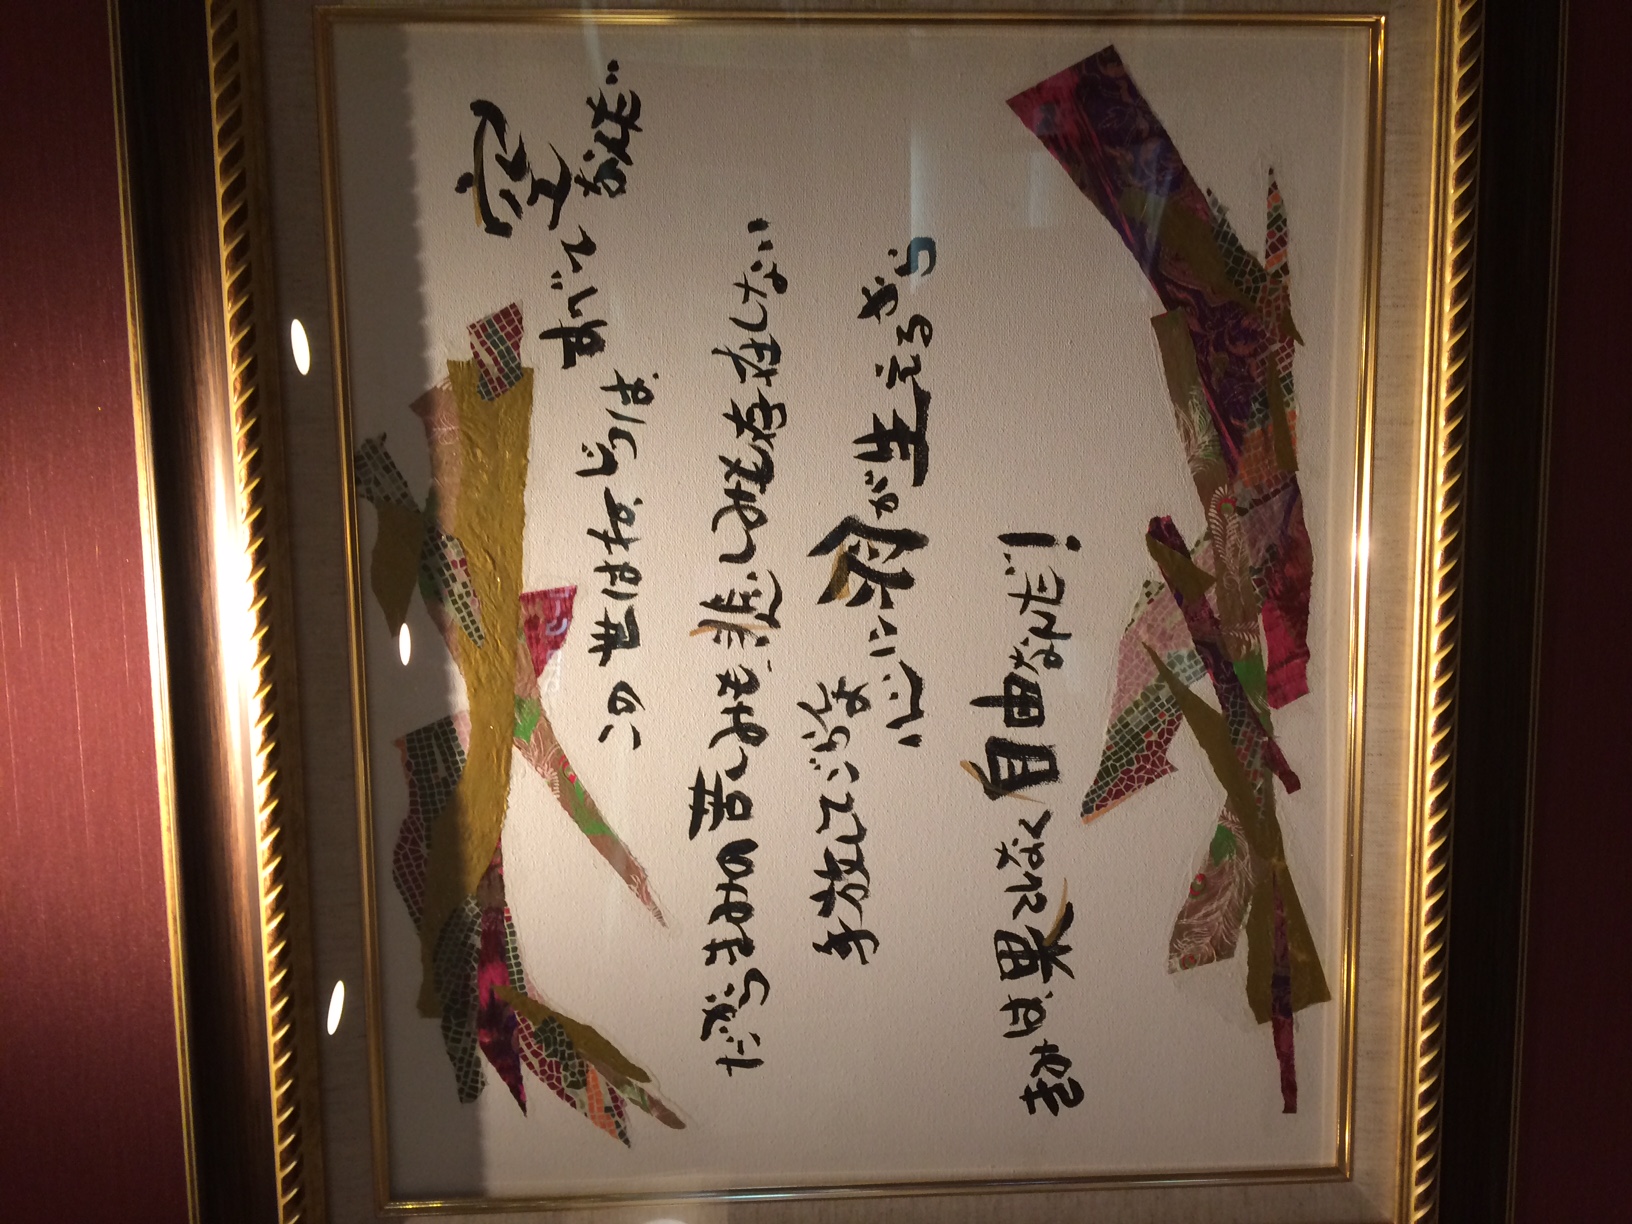 この世はね、じつは、すべて空なんだ
だからきみの苦しみも悲しみも存在しない
手放してごらんよ
心に羽が生えるから
きみは、果てしなく自由なんだ!